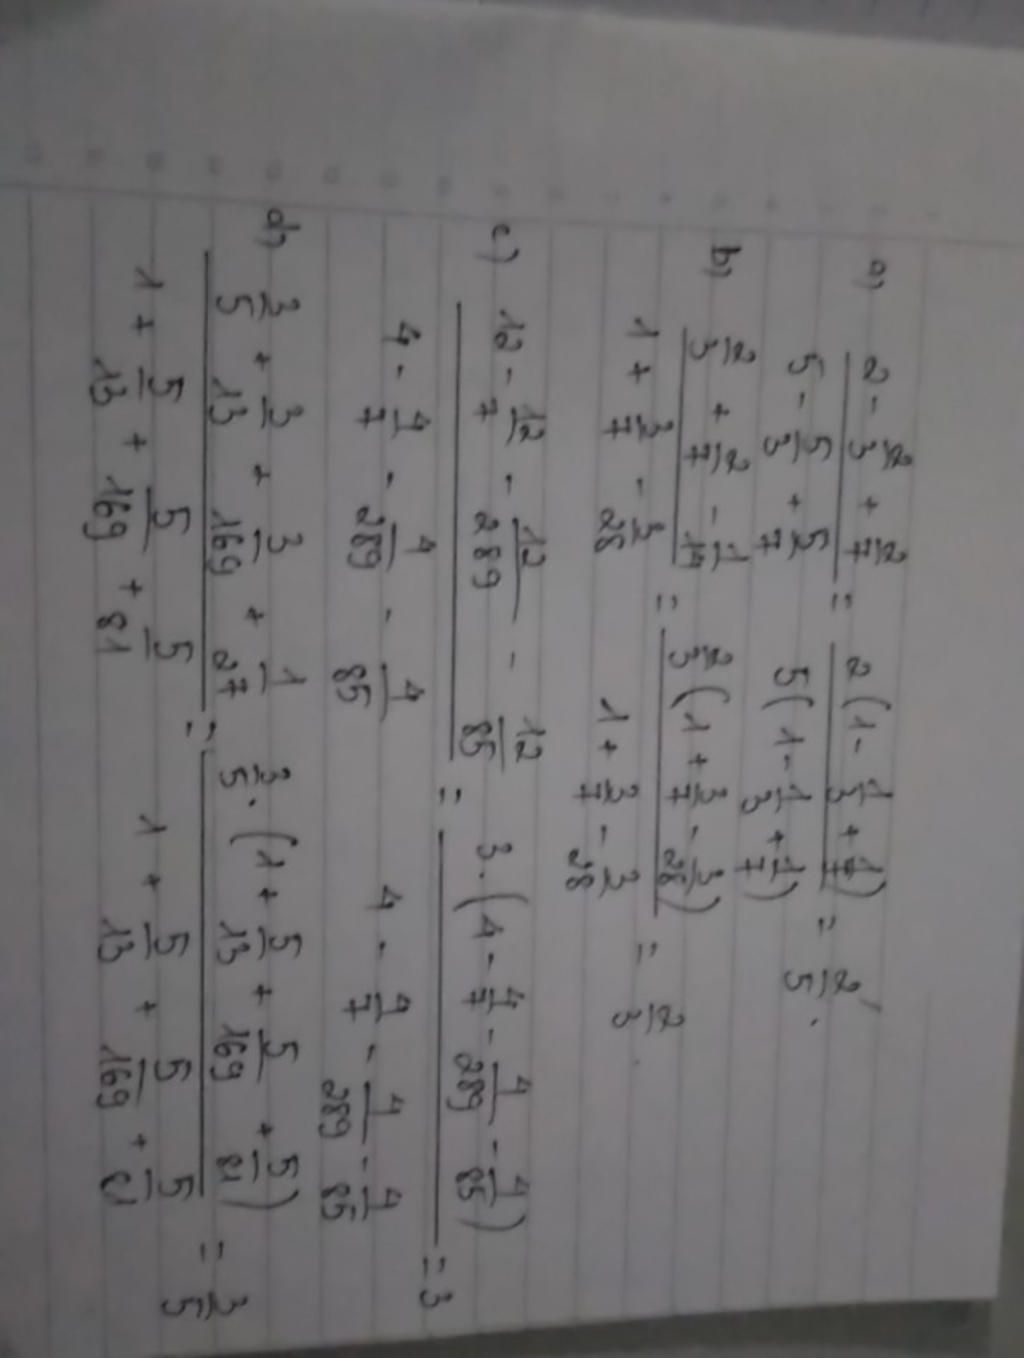 a) (2 - 2/3 + 2/7) / (5 - 5/3 + 5/7) = 2(1 - 1/3 + 1/7) / 5(1 - 1/3 + 1/7) = 2/5.
b) (2/3 + 2/7 - 1/14) / (1 + 3/7 - 3/28) = 2/3(1 + 3/7 - 3/28) / (1 + 3/7 - 3/28) = 2/3.
c) (12 - 12/7 - 12/289 - 12/85) / (4 - 4/7 - 4/289 - 4/85) = 3.(4 - 4/7 - 4/289 - 4/85) / (4 - 4/7 - 4/289 - 4/85) = 3
d) (3/5 + 3/13 + 3/169 + 1/27) / (1 + 5/13 + 5/169 + 5/81) = 3/5.(1 + 5/13 + 5/169 + 5/81) / (1 + 5/13 + 5/169 + 5/81) = 3/5